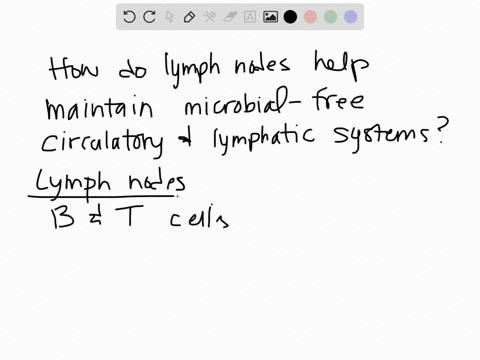 How do lymph nodes help
maintain microbial-free
circulatory & lymphatic systems?
Lymph nodes
B & T cells